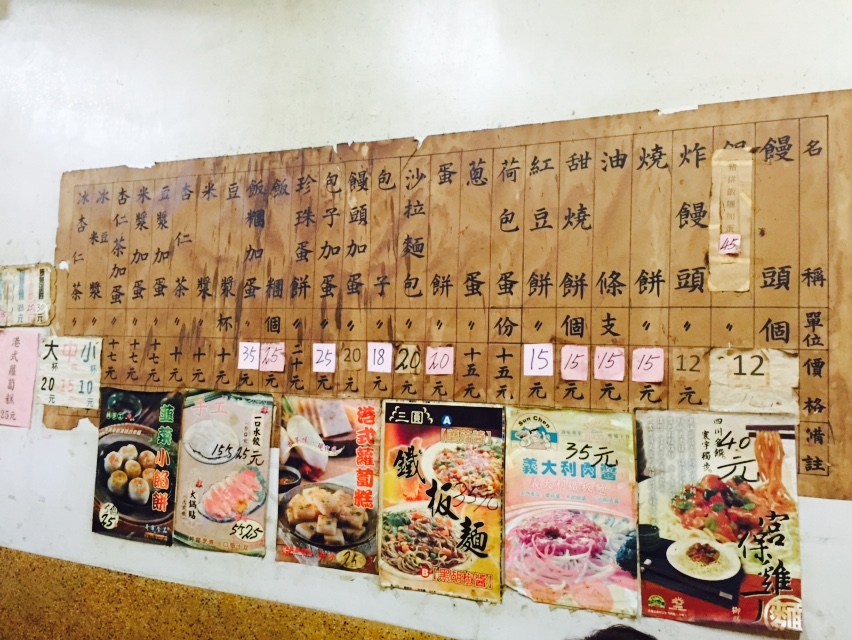 名稱 單位 價格 備註
饅頭 個 12
45
炸饅頭 〃 12元
燒餅 〃 15元
油條 支 15元
甜燒餅 個 15元
紅豆餅 〃 15元
荷包蛋 份 十五元
蔥蛋 〃 十五元
蛋餅 〃 20元
沙拉麵包 〃 20元
包子 〃 18元
饅頭加蛋 〃 20元
包子加蛋 〃 25元
珍珠蛋餅 〃 二十元
飯糰 個 25元
飯糰加蛋 〃 35元
豆漿 杯 十元
米漿 〃 十元
杏仁茶 〃 十元
豆漿加蛋 〃 十七元
米漿加蛋 〃 十七元
杏仁茶加蛋 〃 十七元
冰米豆漿 〃
冰杏仁茶 〃
小杯10元
中杯15元
大杯20元
港式蘿蔔糕
25元
韭菜小餡餅
手工
一口水餃
火鍋貼
港式蘿蔔糕
三圓
A
鐵板麵
35元
B 黑胡椒醬
Sun Chen
35元
義大利肉醬
四川皇饌
40元
宮保雞丁
麵